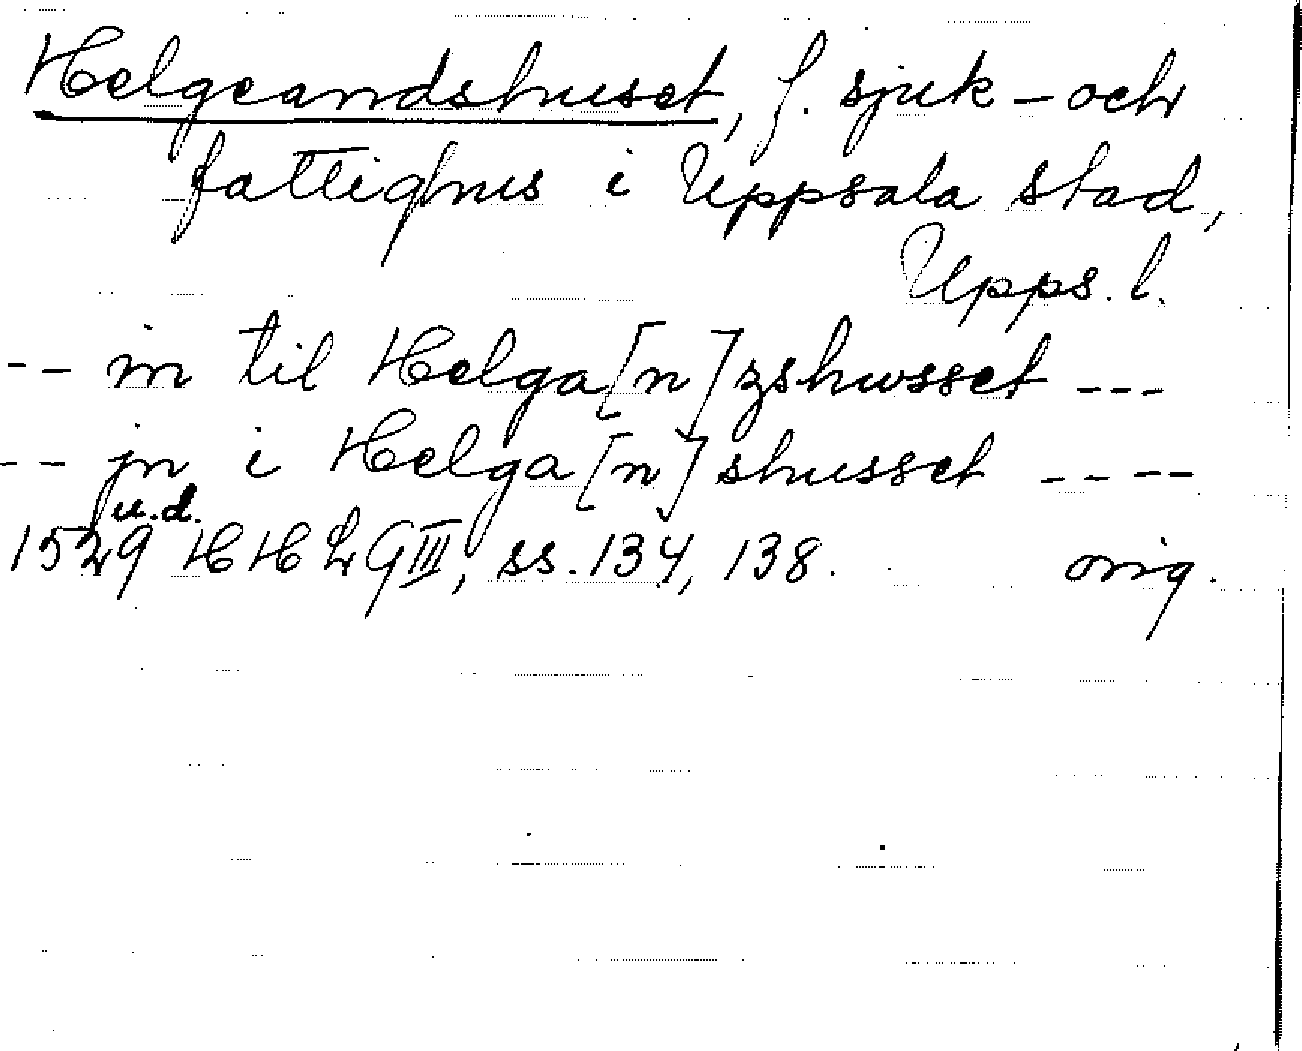 Helgeandshuset, f. sjuk- och
fattighus i Uppsala stad,
Upps. l.
-- in til Helga[n]zshwsset ---
-- jn i Helga[n]shusset ----
u.d.
1529 HHLG III, ss. 134, 138. orig.